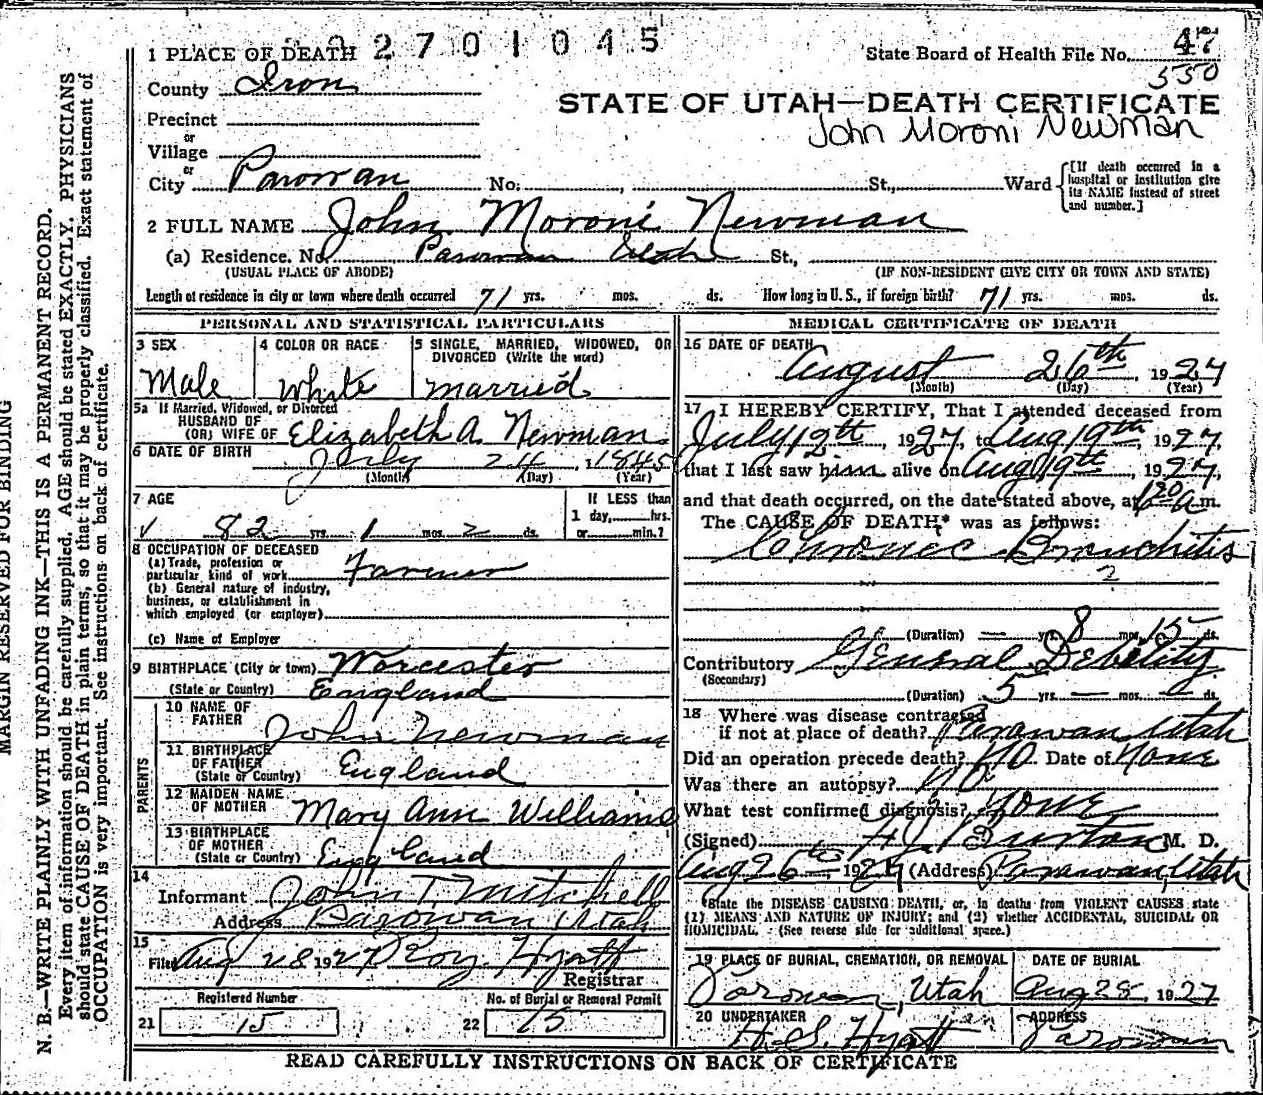 MARGIN RESERVED FOR BINDING
N. B.—WRITE PLAINLY WITH UNFADING INK—THIS IS A PERMANENT RECORD.
Every item of information should be carefully supplied. AGE should be stated EXACTLY. PHYSICIANS
should state CAUSE OF DEATH in plain terms, so that it may be properly classified. Exact statement of
OCCUPATION is very important. See instructions on back of certificate.
2701045
1 PLACE OF DEATH
State Board of Health File No. 47
550
County Iron
STATE OF UTAH—DEATH CERTIFICATE
John Moroni Newman
Precinct
or
Village
or
City Parowan No. , St., Ward
[If death occurred in a
hospital or institution give
its NAME instead of street
and number.]
2 FULL NAME John Moroni Newman
(a) Residence. No. Parowan Utah St.,
(USUAL PLACE OF ABODE) (IF NON-RESIDENT GIVE CITY OR TOWN AND STATE)
Length of residence in city or town where death occurred 71 yrs. mos. ds. How long in U. S., if foreign birth? 71 yrs. mos. ds.
PERSONAL AND STATISTICAL PARTICULARS
3 SEX
Male
4 COLOR OR RACE
White
5 SINGLE, MARRIED, WIDOWED, OR
DIVORCED (Write the word)
married
5a If Married, Widowed, or Divorced
HUSBAND OF
(OR) WIFE OF Elizabeth A. Newman
6 DATE OF BIRTH July 24, 1845
(Month) (Day) (Year)
7 AGE
82 yrs. 1 mos. 2 ds.
If LESS than
1 day, hrs.
or min.?
8 OCCUPATION OF DECEASED
(a) Trade, profession or
particular kind of work Farmer
(b) General nature of industry,
business, or establishment in
which employed (or employer)
(c) Name of Employer
9 BIRTHPLACE (City or town) Worcester
(State or Country) England
PARENTS
10 NAME OF
FATHER John Newman
11 BIRTHPLACE
OF FATHER
(State or Country) England
12 MAIDEN NAME
OF MOTHER Mary Ann Williams
13 BIRTHPLACE
OF MOTHER
(State or Country) England
14
Informant John T. Mitchell
Address Parowan Utah
15
Filed Aug 28 1927 Roy Hyatt
Registrar
Registered Number
21 15
No. of Burial or Removal Permit
22 15
MEDICAL CERTIFICATE OF DEATH
16 DATE OF DEATH
August 26th, 1927
(Month) (Day) (Year)
17 I HEREBY CERTIFY, That I attended deceased from
July 12th, 1927, to Aug 19th, 1927,
that I last saw him alive on Aug 19th, 1927,
and that death occurred, on the date stated above, at 6 20 a m.
The CAUSE OF DEATH* was as follows:
Chronic Bronchitis
2
(Duration) — yrs. 8 mos. 15 ds.
Contributory General Debility
(Secondary)
(Duration) 5 yrs. — mos. — ds.
18 Where was disease contracted
if not at place of death? Parawan Utah
Did an operation precede death? NO Date of None
Was there an autopsy? NO
What test confirmed diagnosis? None
(Signed) Burton M. D.
Aug 26th 1927 (Address) Parawan, Utah
*State the DISEASE CAUSING DEATH, or, in deaths from VIOLENT CAUSES state
(1) MEANS AND NATURE OF INJURY; and (2) whether ACCIDENTAL, SUICIDAL OR
HOMICIDAL. (See reverse side for additional space.)
19 PLACE OF BURIAL, CREMATION, OR REMOVAL
Parowan, Utah
DATE OF BURIAL
Aug 28, 1927
20 UNDERTAKER
H. S. Hyatt
ADDRESS
Parowan
READ CAREFULLY INSTRUCTIONS ON BACK OF CERTIFICATE